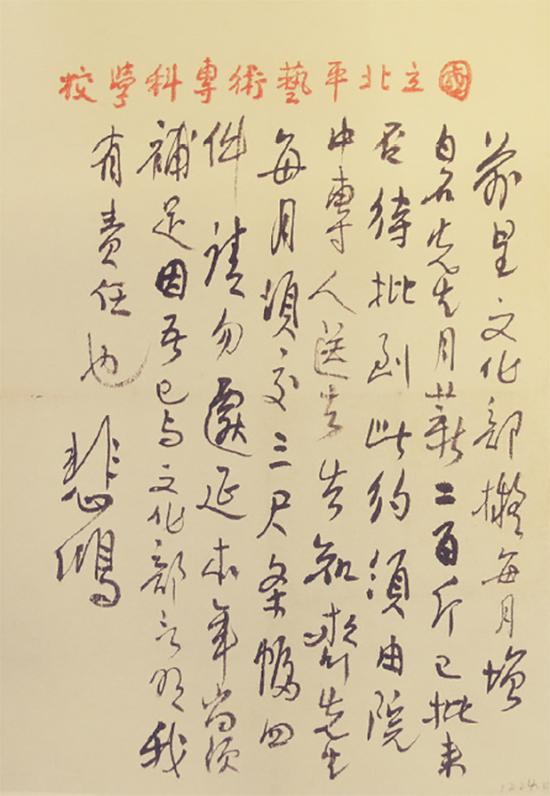 國立北平藝術專科學校
前呈文化部擬每月增
白石先生月薪二百斤已批来
否待批到此约須由院
中專人送去告知齊先生
每月須交三尺条幅四
件請勿遲延本年尚須
補足因吾已与文化部言明我
有責任也
悲鴻